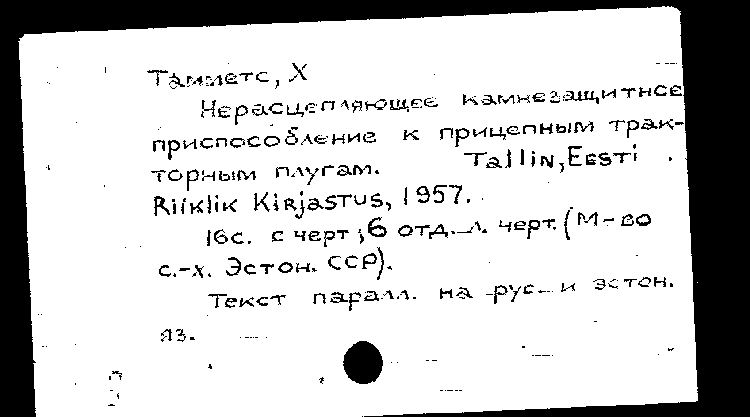 Тамметс, Х
Нерасцепляющее камнезащитное
приспособление к прицепным трак-
торным плугам. Tallin, Eesti
Riiklik Kirjastus, 1957.
16с. с черт; 6 отд. л. черт. (М-во
с.-х. Эстон. ССР).
Текст паралл. на рус. и эстон.
яз.